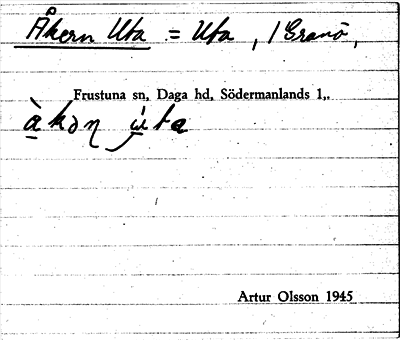 Åkern Uta = Uta, 1 Granö,
Frustuna sn, Daga hd, Södermanlands l,.
Artur Olsson 1945